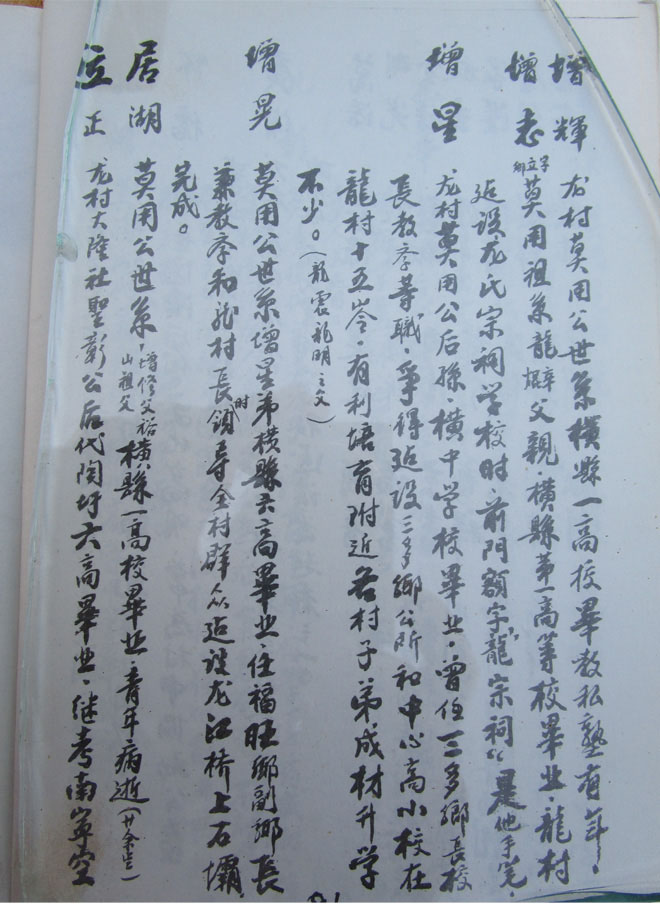 增輝 龙村莫用公世系横縣一高校畢教私塾有年。
增志 字立卿 莫用祖系龍父親。横縣第一高等校畢业。龍村
延设龙氏宗祠学校时前門额字"龍宗祠"是他手笔。
增星 龙村莫用公后孫。横中学校畢业。曾任三多鄉長校
長教学等職。爭得延设三多鄉公所和中心高小校在
龍村十五岺。有利培育附近各村子弟成材升学
不少。(龍震龍明之父)
增晃 莫用公世系增星弟横縣六高畢业。任福旺鄉副鄉長
兼教学和龙村長时領导全村群众延设龙江桥上石壩
完成。
居湖 莫用公世系。增修父裕山祖父 横縣一高校畢业。青年病逝(廿余岁)
位正 龙村大陸社聖彰公后代陶圩六高畢业。继考南寧空